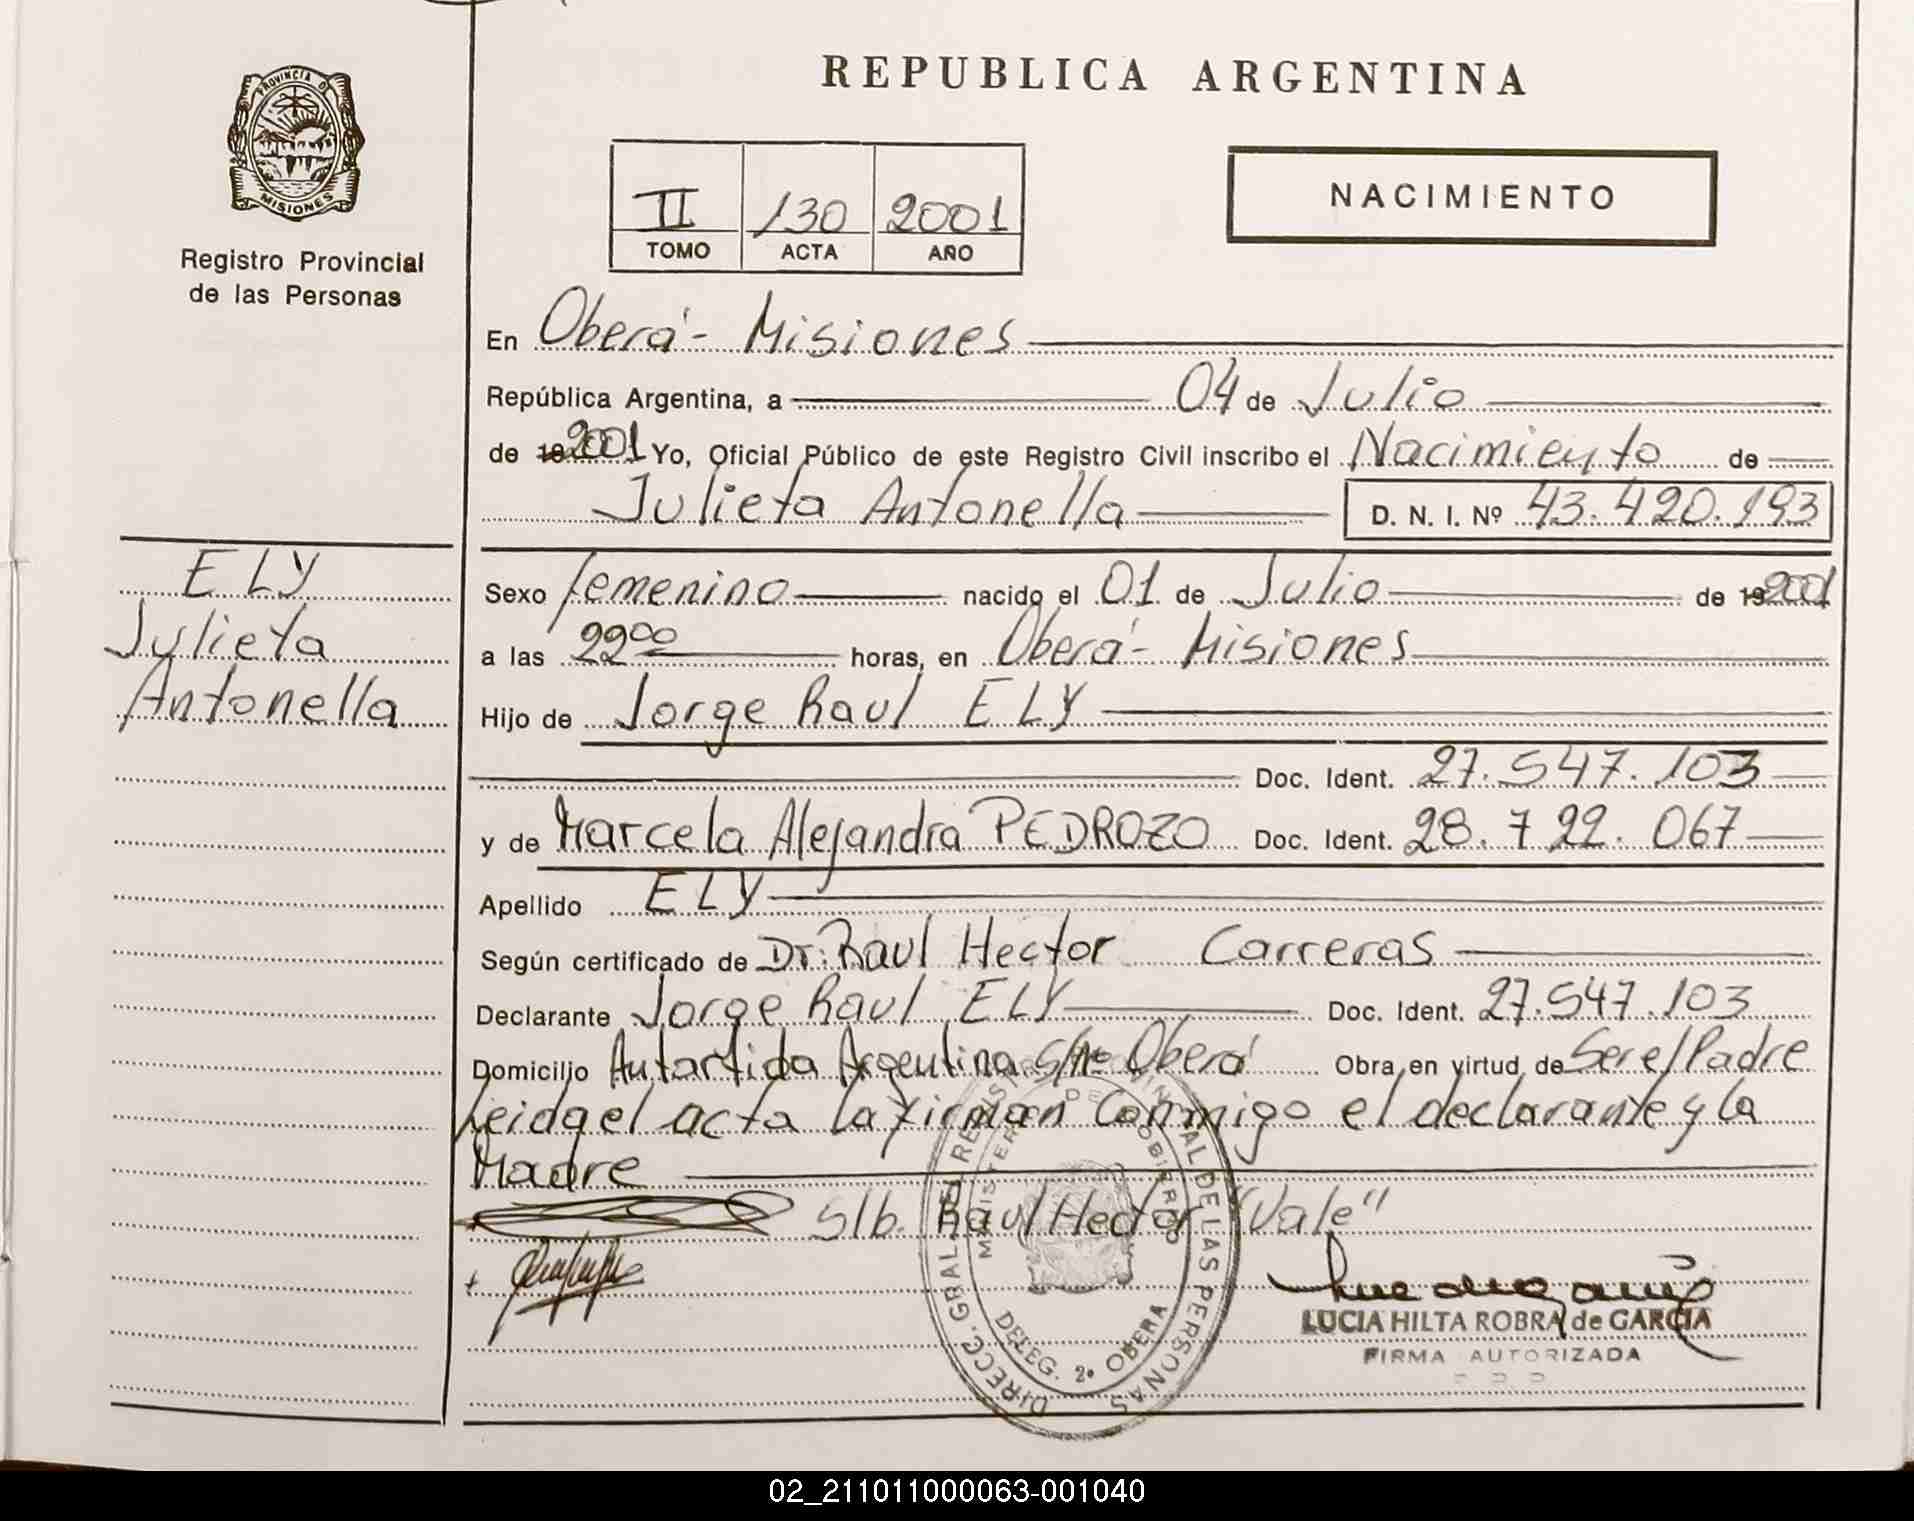 REPUBLICA ARGENTINA
PROVINCIA DE
MISIONES
Registro Provincial
de las Personas
II /30 2001
TOMO ACTA AÑO
NACIMIENTO
En Oberá - Misiones
República Argentina, a 04 de Julio
de 19 2001 Yo, Oficial Público de este Registro Civil inscribo el Nacimiento de
Julieta Antonella D. N. I. Nº 43.420.193
ELY
Julieta
Antonella
Sexo femenino nacido el 01 de Julio de 19 2001
a las 22 00 horas, en Oberá - Misiones
Hijo de Jorge Raul ELY
Doc. Ident. 27.547.103
y de Marcela Alejandra PEDROZO Doc. Ident. 28.722.067
Apellido ELY
Según certificado de Dr. Raul Hector Carreras
Declarante Jorge Raul ELY Doc. Ident. 27.547.103
Domicilio Antartida Argentina S/Nº Oberá Obra en virtud de Ser el Padre
Leida el acta la firman conmigo el declarante y la
Madre
S/b. Raul Hector "Vale"
DIRECC. GRAL. DEL REGISTRO PROVINCIAL DE LAS PERSONAS
MINISTERIO DE GOBIERNO
DELEG. 2º OBERA
LUCIA HILTA ROBRA de GARCIA
FIRMA AUTORIZADA
02_211011000063-001040